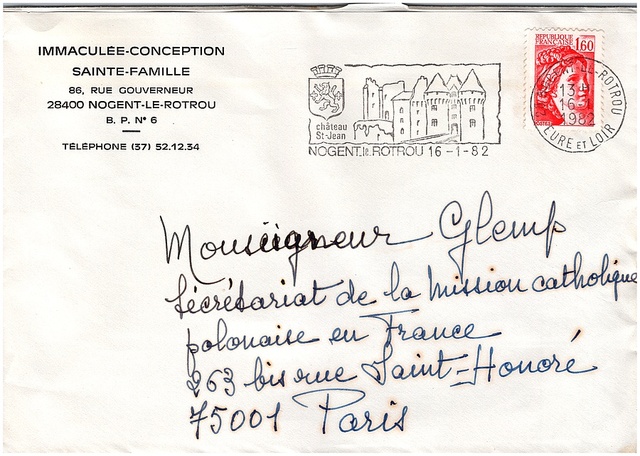 IMMACULÉE-CONCEPTION
SAINTE-FAMILLE
86, RUE GOUVERNEUR
28400 NOGENT-LE-ROTROU
B. P. N° 6
TÉLÉPHONE (37) 52.12.34
château
St-Jean
NOGENT.le.ROTROU 16-1-82
REPUBLIQUE
FRANCAISE 1,60
13 H
16
1982
EURE ET LOIR
Monseigneur Glemp
Sécrétariat de la Mission catholique
polonaise en France
263 bis rue Saint-Honoré
75001 Paris